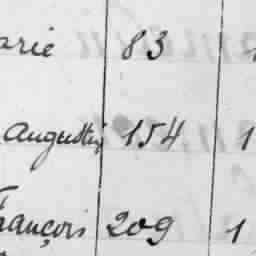 arie 83
Augustin 154 1
François 209 1